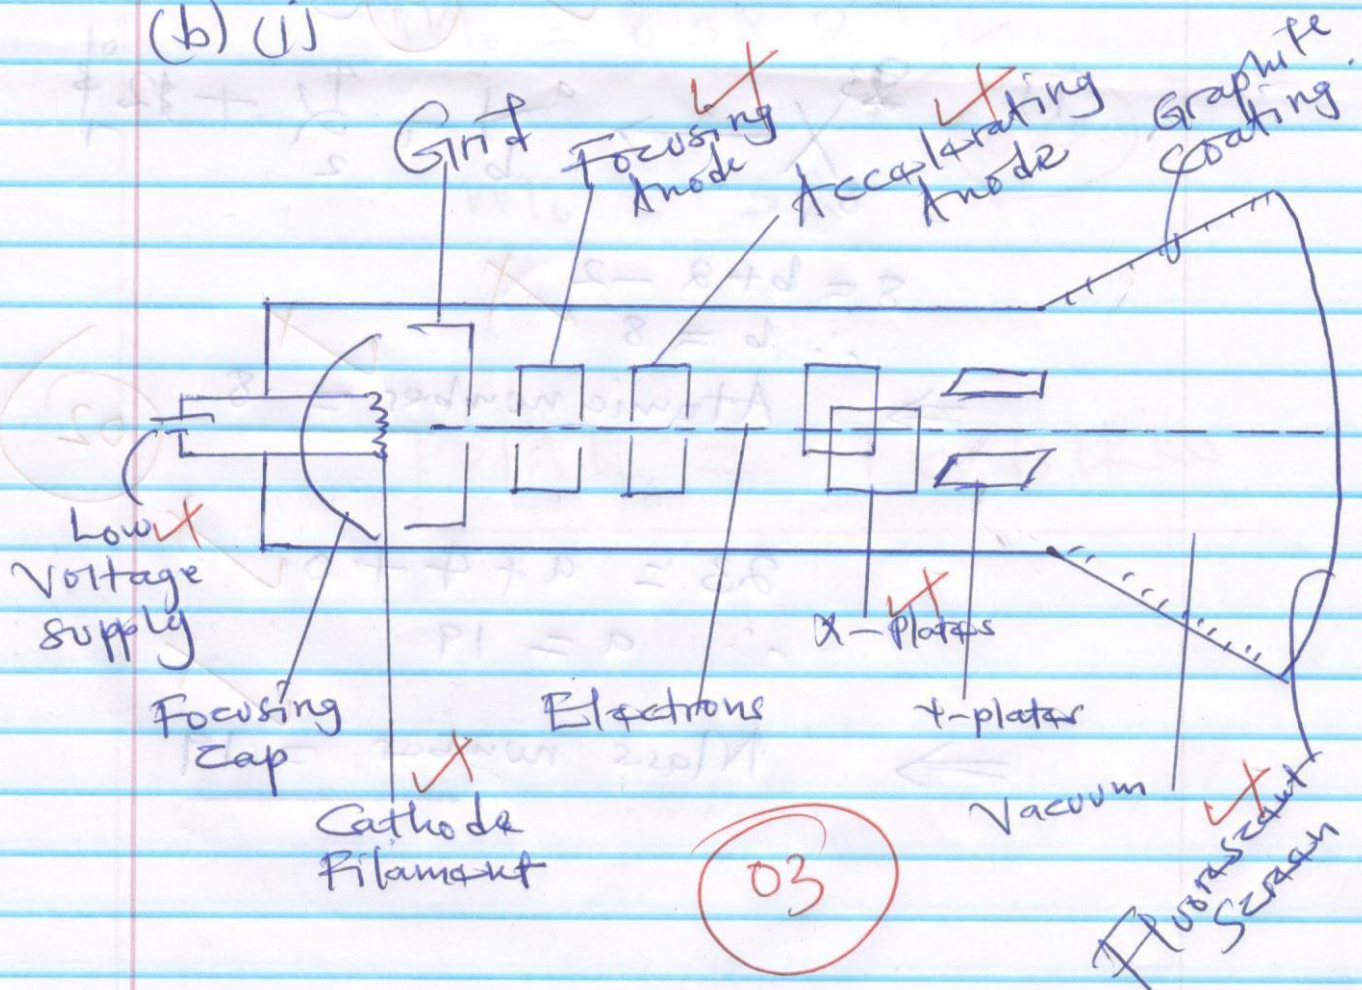 (b) (i)
Grid
Focusing
Anode
Accelerating
Anode
Graphite
coating.
Low
Voltage
supply
Focusing
Cap
Cathode
Filament
Electrons
X-plates
Y-plates
Vacuum
Fluorescent
Screen
03